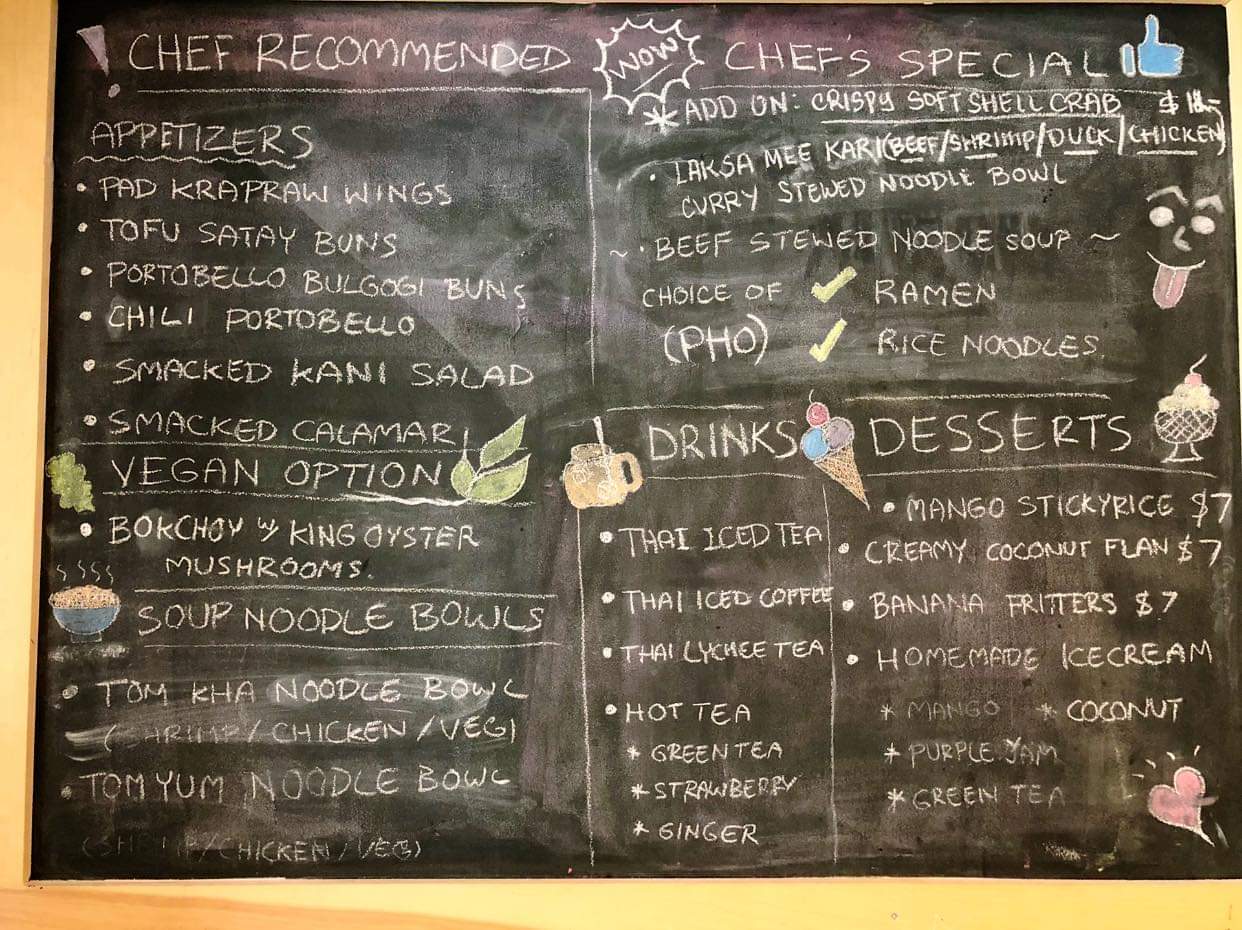 ! CHEF RECOMMENDED
APPETIZERS
• PAD KRAPRAW WINGS
• TOFU SATAY BUNS
• PORTOBELLO BULGOGI BUNS
• CHILI PORTOBELLO
• SMACKED KANI SALAD
• SMACKED CALAMARI
VEGAN OPTION
• BOKCHOY W/ KING OYSTER
MUSHROOMS.
SOUP NOODLE BOWLS
• TOM KHA NOODLE BOWL
(SHRIMP/CHICKEN/VEG)
• TOM YUM NOODLE BOWL
(SHRIMP/CHICKEN/VEG)
WOW
CHEF'S SPECIAL
* ADD ON: CRISPY SOFTSHELL CRAB $
• LAKSA MEE KARI(BEEF/SHRIMP/DUCK/CHICKEN)
CURRY STEWED NOODLE BOWL
~ • BEEF STEWED NOODLE SOUP ~
CHOICE OF ✓ RAMEN
(PHO) ✓ RICE NOODLES
DRINKS
• THAI ICED TEA
• THAI ICED COFFEE
• THAI LYCHEE TEA
• HOT TEA
* GREEN TEA
* STRAWBERRY
* GINGER
DESSERTS
• MANGO STICKYRICE $7
• CREAMY COCONUT FLAN $7
• BANANA FRITTERS $7
• HOMEMADE ICECREAM
* MANGO * COCONUT
* PURPLE YAM
* GREEN TEA